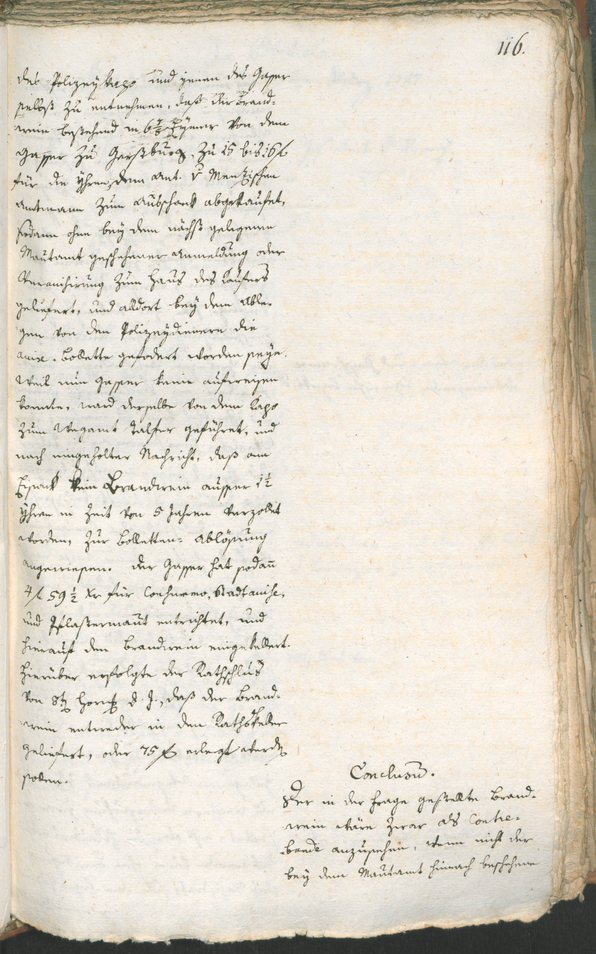 116.
des Polizeykaps und jenen des Gasser
selbst zu entnehmen, daß der Brand-
wein bestehend in 6 Yhrnen von dem
Gasser zu Gerstburg zu 15 bis 16 f
für die Yhren, dem Ant. v Menzischen
Amtmann zum Ausschank abgekaufet,
sodann ohne bey dem nächst gelegenen
Mautamt geschehener Anmeldung oder
zum Haus des Kaufers
geliefert, und alldort bey dem Able-
gen von den Polizeydienern die
Bollette gefodert worden seye.
Weil nun Gasser keine aufweisen
konnte, ward derselbe von dem Capo
zum Wegamt Talfer geführet, und
nach eingeholter Nachricht, daß am
Eysack kein Brandwein ausser 1½
Yhren in Zeit von 5 Jahren verzollet
worden, zur Bolletten-Ablösung
angewiesen. Der Gasser hat sodann
4 f 59½ Xr für Consumo, Stadtwaage,
und Pflastermaut entrichtet, und
hierauf den Brandwein eingekellert.
Hierüber erfolgte der Rathschluß
von 8t Hornung d. J., daß der Brand-
wein entweder in den Rathskeller
geliefert, oder 75 f erlegt werden
sollen.
Conclusum.
Der in der Frage gestellte Brand-
wein wäre zwar als Contre-
bande anzusehen, wenn nicht der
bey dem Mautamt hernach beschehene